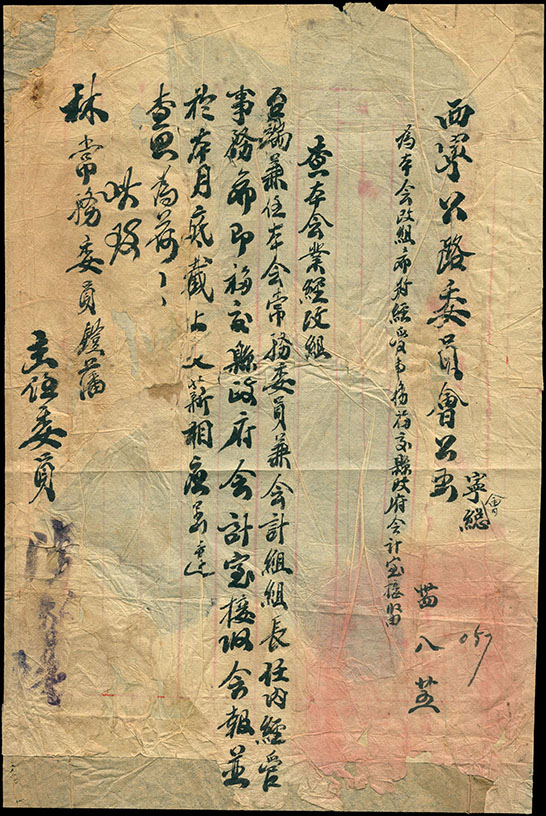 西寧公路委員會公函
寧會總
057
卅四 八 廿五
為本会改組希對經管事務移交縣政府会計室接收由
查本会業經改組
兼任本会常務委員兼会計組組長任內經管
事務希即移交縣政府会計室接收会報並
於本月底截止支薪相應函達
查照為荷
此致
林常務委員
主任委員